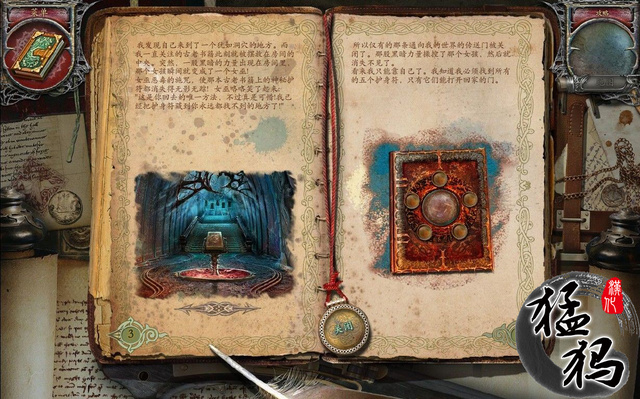 菜单
我发现自己来到了一个犹如洞穴的地方。而
我一直关注的古老书籍此刻就被摆放在房间的
中央。突然，一股黑暗力量出现在房间里，
那个女孩瞬间就变成了一个女巫！
女巫恶毒的诅咒，使那本古老书籍上的神秘护
符都消失得无影无踪！女巫咯咯笑了起来：
“这是你回去的唯一方法，不过真是可惜！我已
经把护身符藏到你永远都找不到的地方了！”
3
所以仅有的那条通向我们世界的传送门被关
闭了。那股黑暗力量操控了那个女孩，然后就
消失不见了。
看来我只能靠自己了。我知道我必须找到所有
的五个护身符，只有它们能打开回家的门。
关闭
猛犸
汉化